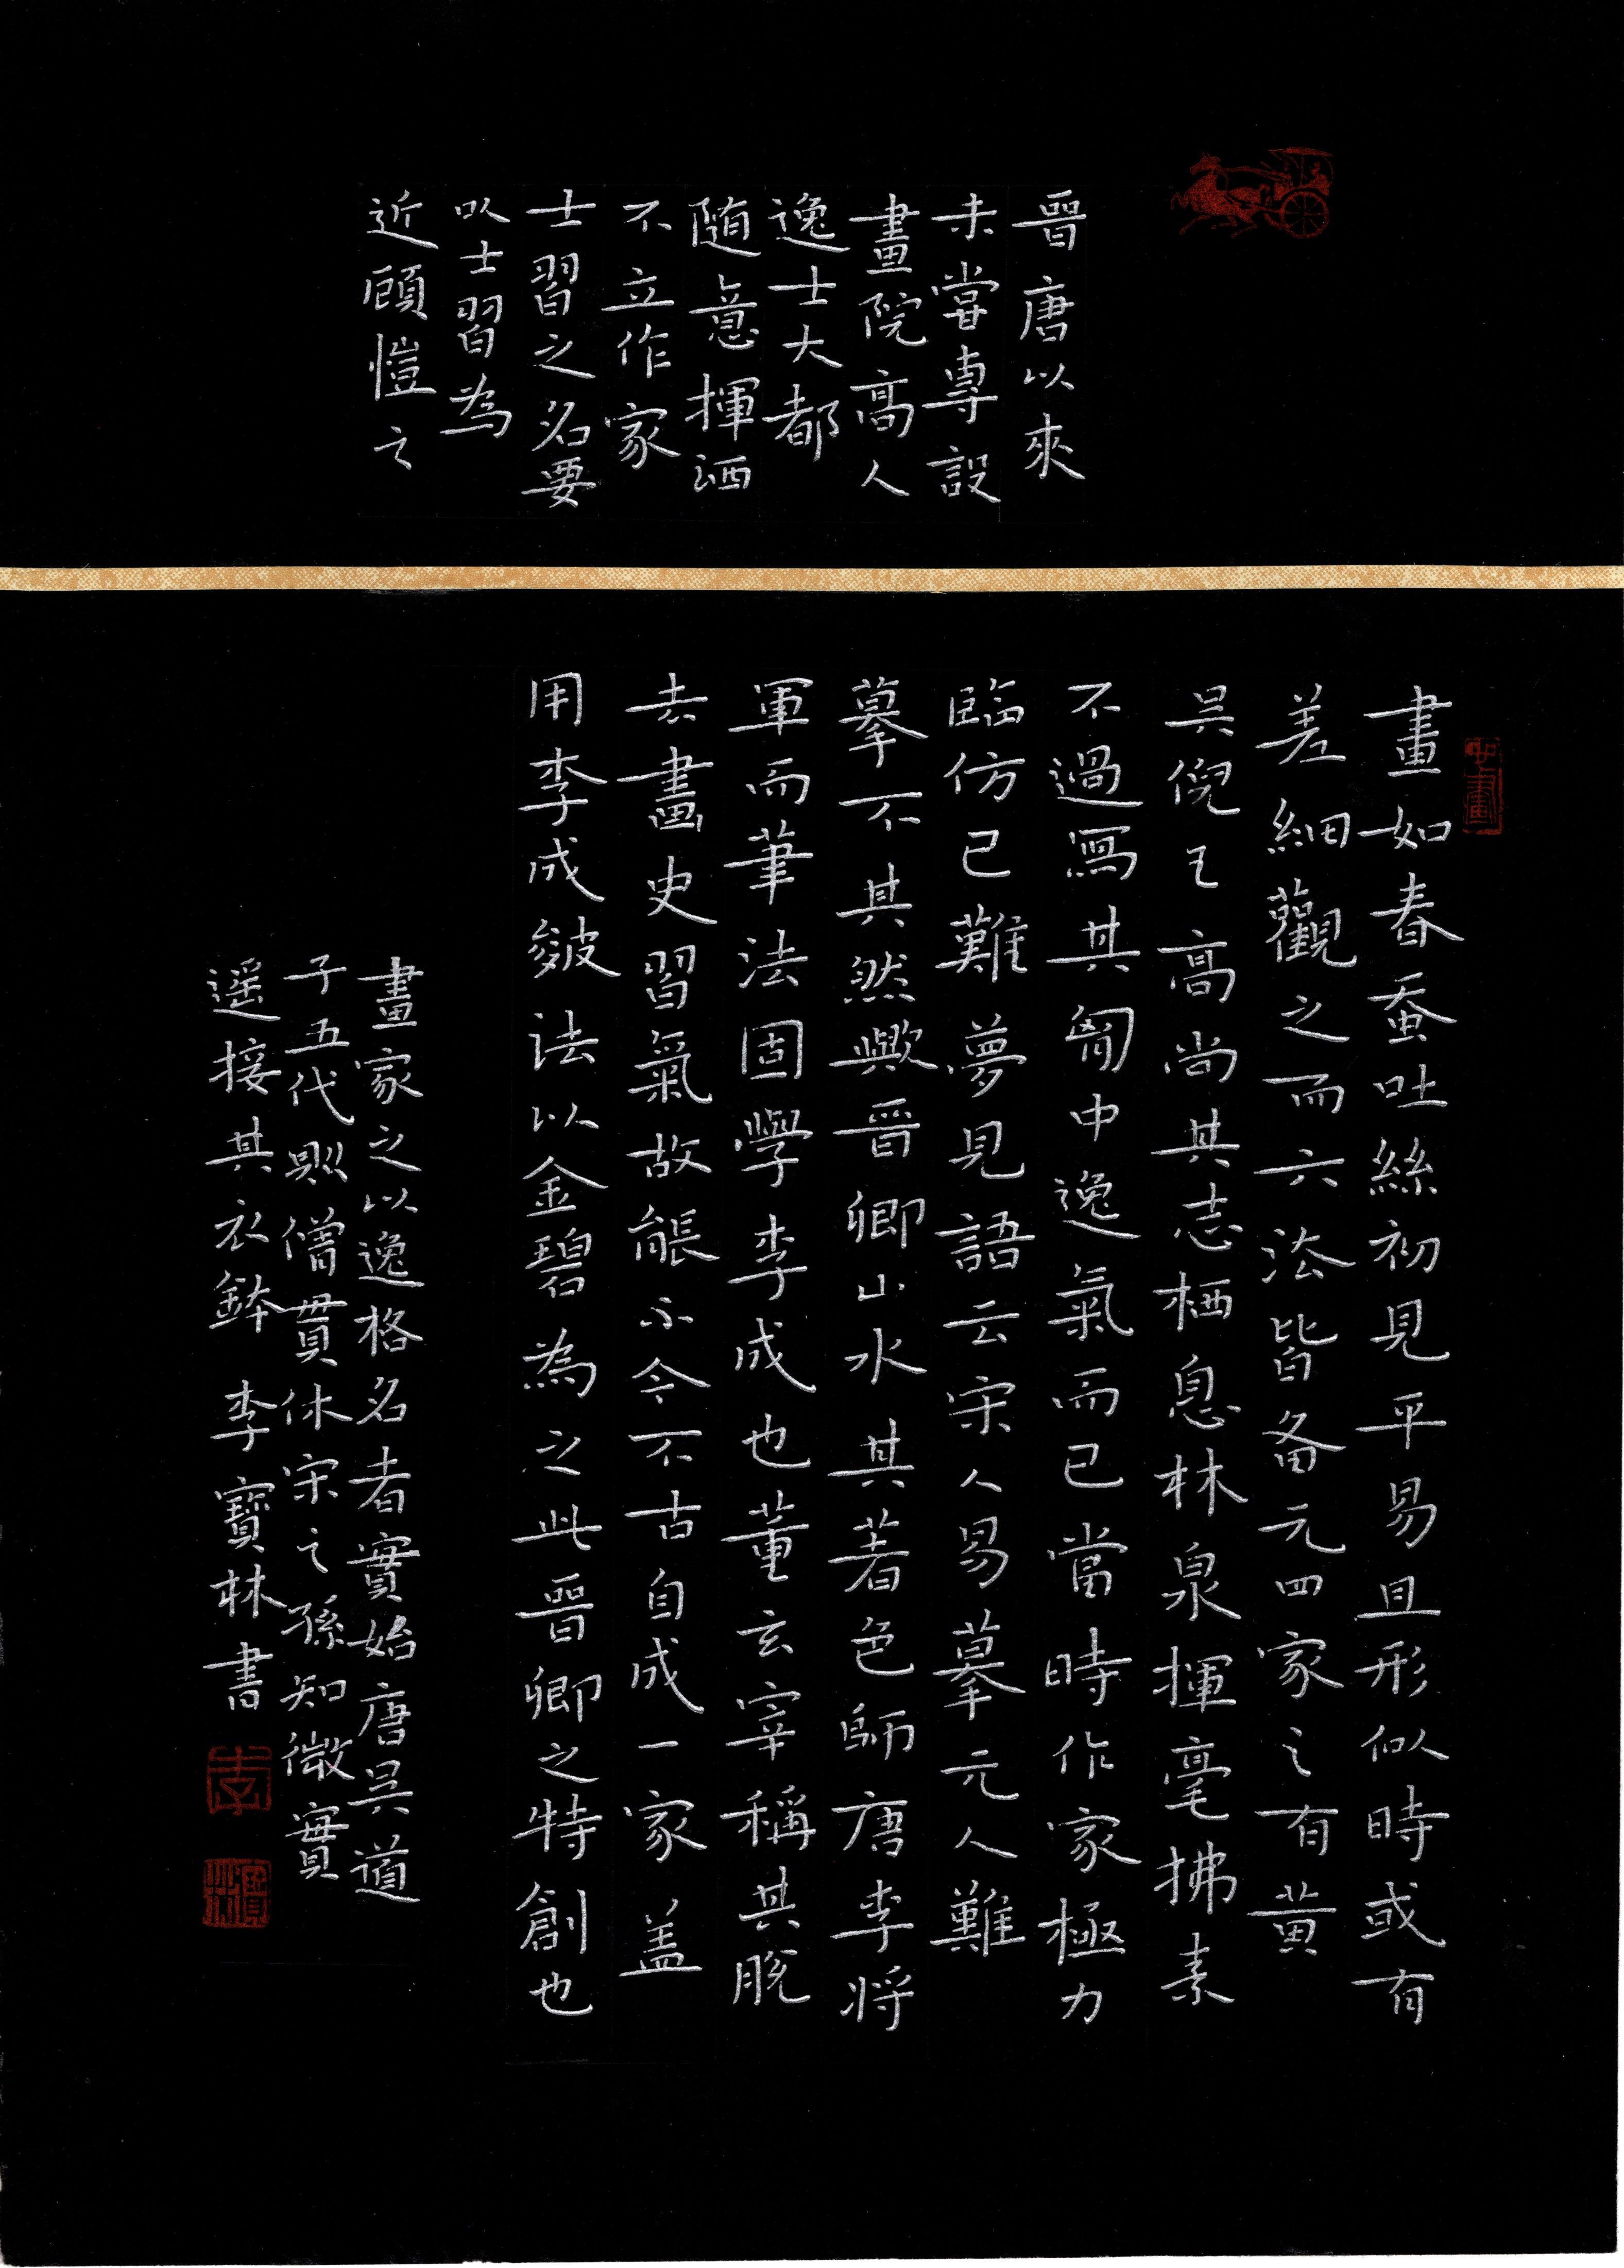 晉唐以來
未嘗專設
畫院高人
逸士大都
随意揮洒
不立作家
士習之名要
以士習為
近顧愷之
畫如春蚕吐絲初見平易且形似時或有
差細觀之而六法皆备元四家之有黄
吴倪王高尚其志栖息林泉揮毫拂素
不過寫其胷中逸氣而已當時作家極力
臨仿已難夢見語云宋人易摹元人難
摹不其然歟晋卿山水其著色師唐李将
軍而筆法固學李成也董玄宰稱其脫
去畫史習氣故能不今不古自成一家盖
用李成皴法以金碧為之此晋卿之特創也
畫家之以逸格名者實始唐吴道
子五代則僧貫休宋之孫知微實
遥接其衣鉢 李寶林書